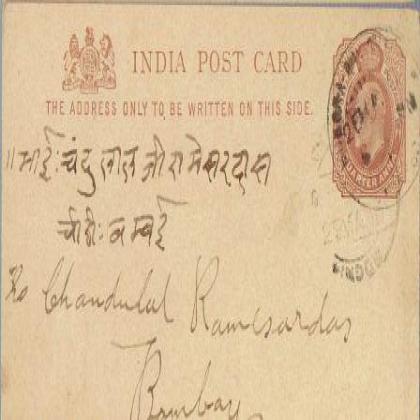 INDIA POST CARD
THE ADDRESS ONLY TO BE WRITTEN ON THIS SIDE.
QUARTER ANNA
॥ भाई: चंदु लाल जी रामेसरदास
चीठी: बम्बई
To Chandulal Ramesardas
Bombay